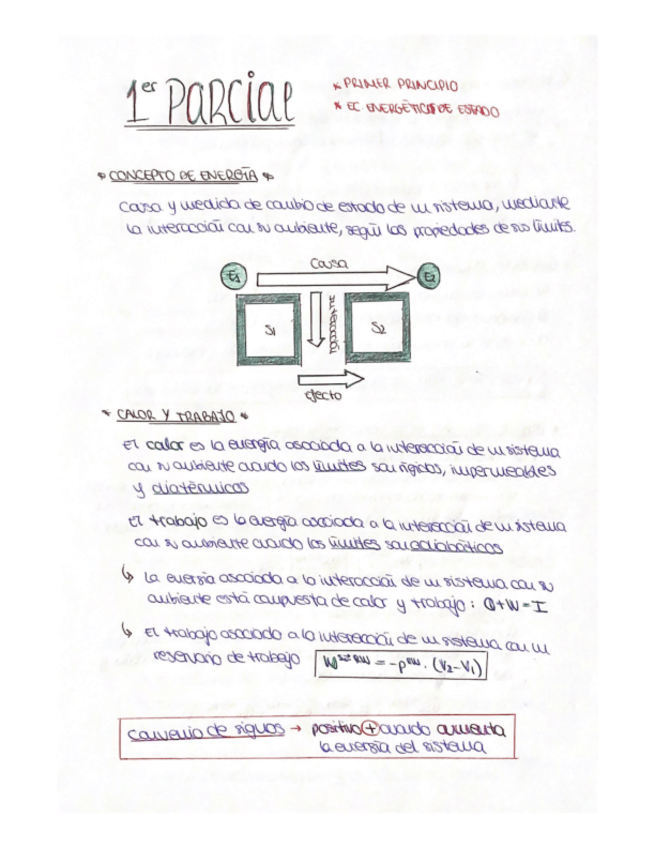 1er PARCIAL
* PRIMER PRINCIPIO
* EC ENERGÉTICAS DE ESTADO
* CONCEPTO DE ENERGÍA *
Causa y medida de cambio de estado de un sistema, mediante
la interacción con su ambiente, según las propiedades de sus límites.
Causa
E1
E2
S1
INTERACCIÓN
S2
efecto
* CALOR Y TRABAJO *
El calor es la energía asociada a la interacción de un sistema
con su ambiente cuando los límites son rígidos, impermeables
y diatérmicos
El trabajo es la energía asociada a la interacción de un sistema
con su ambiente cuando los límites son adiabáticos
↳ La energía asociada a la interacción de un sistema con su
ambiente está compuesta de calor y trabajo : Q+W=I
↳ El trabajo asociado a la interacción de un sistema con un
reservorio de trabajo = -P^RW · (V2-V1)
Convenio de signos → positivo + cuando aumenta
la energía del sistema